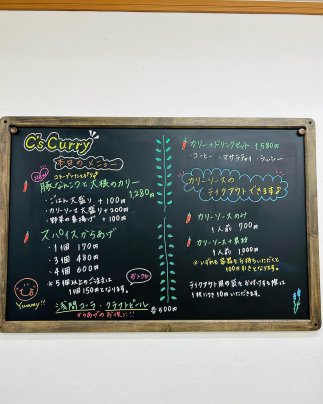 C's Curry
本日のメニュー
NEW
豚なんこつと大根のカリー
1280円
・ごはん大盛り +100円
・カリーソース大盛り +200円
・野菜の素揚げ +100円
スパイスからあげ
・1個 170円
・3個 480円
・4個 600円
※5個以上のご注文は
1個150円となります。
おトク
Yummy!!
浅間コーラ・クラフトビール
からあげのお供に!!
各600円
カリー+ドリンクセット 1580円
・コーヒー ・マサラチャイ ・ラッシー
カリーソースの
テイクアウトできます
カリーソースのみ
1人前 700円
カリーソース+具材
1人前 1000円
※いずれも容器をお持ちいただくと
100円引きとなります。
テイクアウト用の袋をお付けする際は
1枚につき10円いただきます。